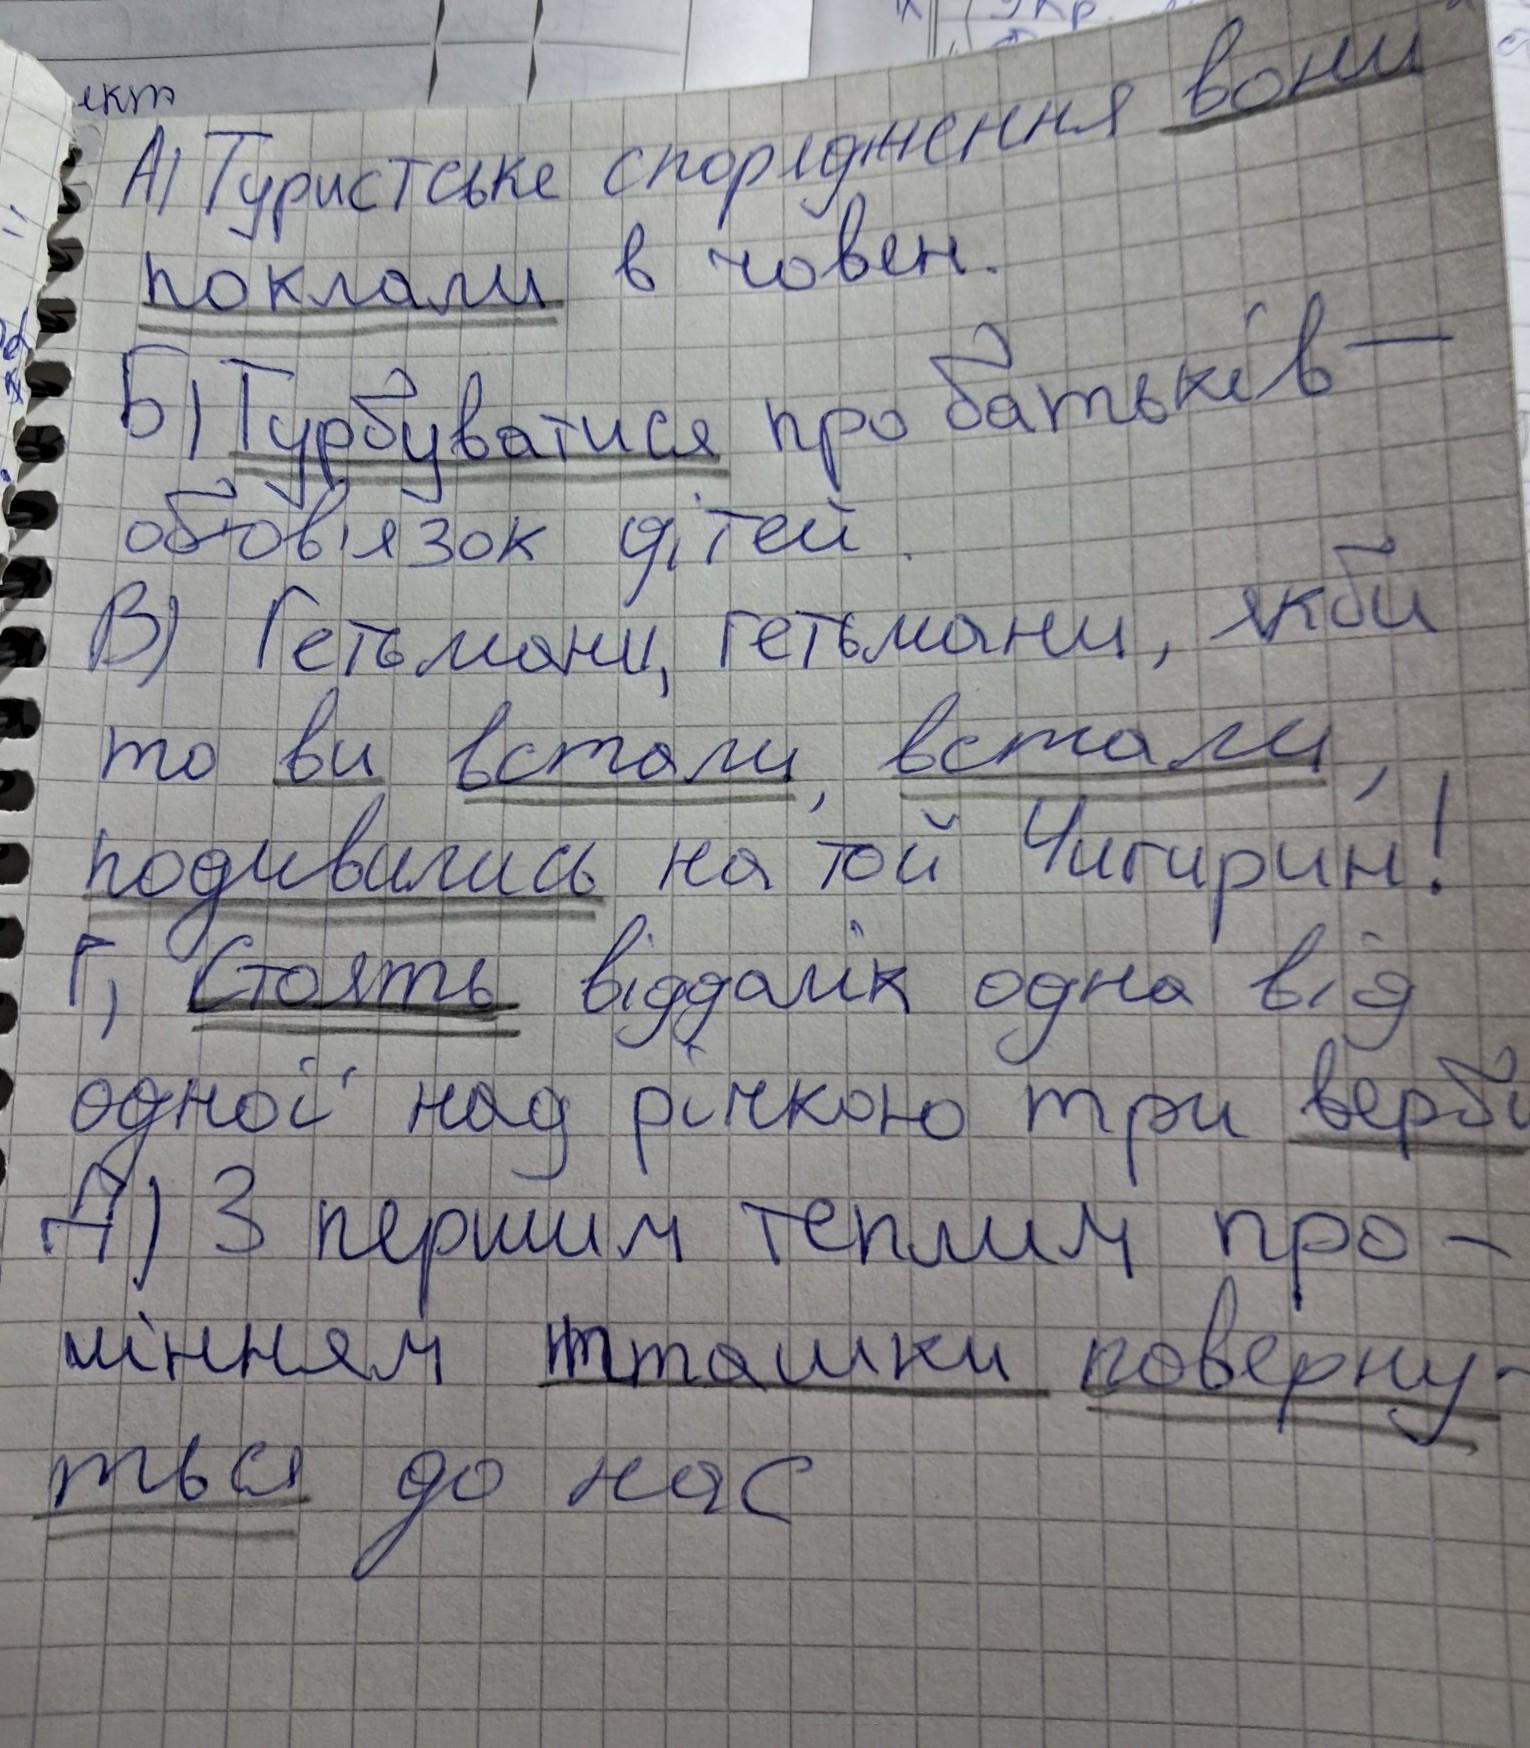 ект
А) Туристське спорядження вони
поклали в човен.
Б) Турбуватися про батьків —
обов'язок дітей.
В) Гетьмани, гетьмани, якби
то ви встали, встали,
подивились на той Чигирин!
Г) Стоять віддалік одна від
одної над річкою три верби
Д) З першим теплим про-
мінням пташки поверну-
ться до нас